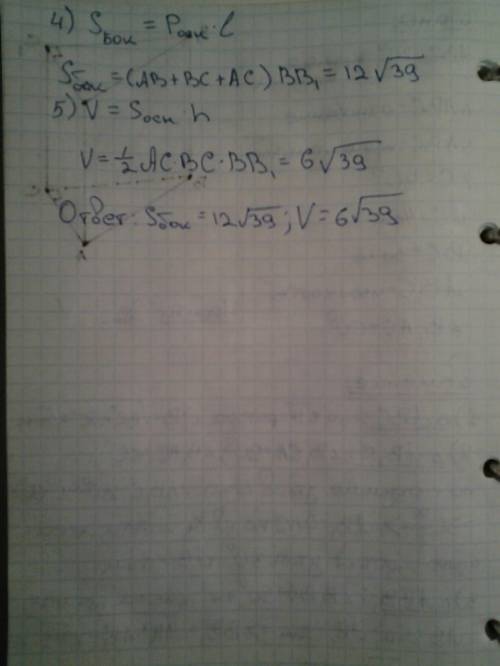 4) Sбок = Pосн · l
Sбок = (AB + BC + AC) BB₁ = 12√39
5) V = Sосн · h
V = ½ AC · BC · BB₁ = 6√39
Ответ: Sбок = 12√39; V = 6√39